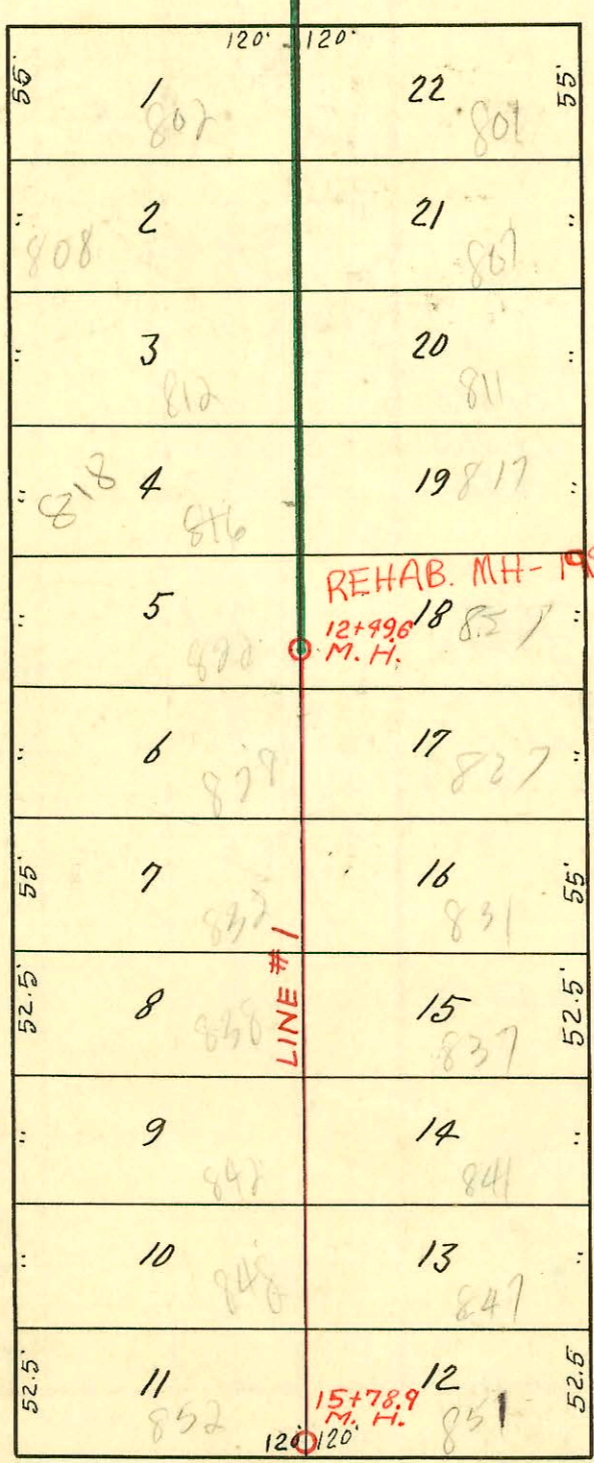 120' 120'
55' 1 802 22 801 55'
" 2 808 21 807 "
" 3 812 20 811 "
" 4 818 816 19 817 "
REHAB. MH-
" 5 18 "
12+49.6
M. H.
" 6 828 17 827 "
55' 7 832 16 831 55'
LINE # 1
52.5' 8 838 15 837 52.5'
" 9 842 14 841 "
" 10 848 13 847 "
52.5' 11 852 12 851 52.5'
15+78.9
M. H.
120' 120'